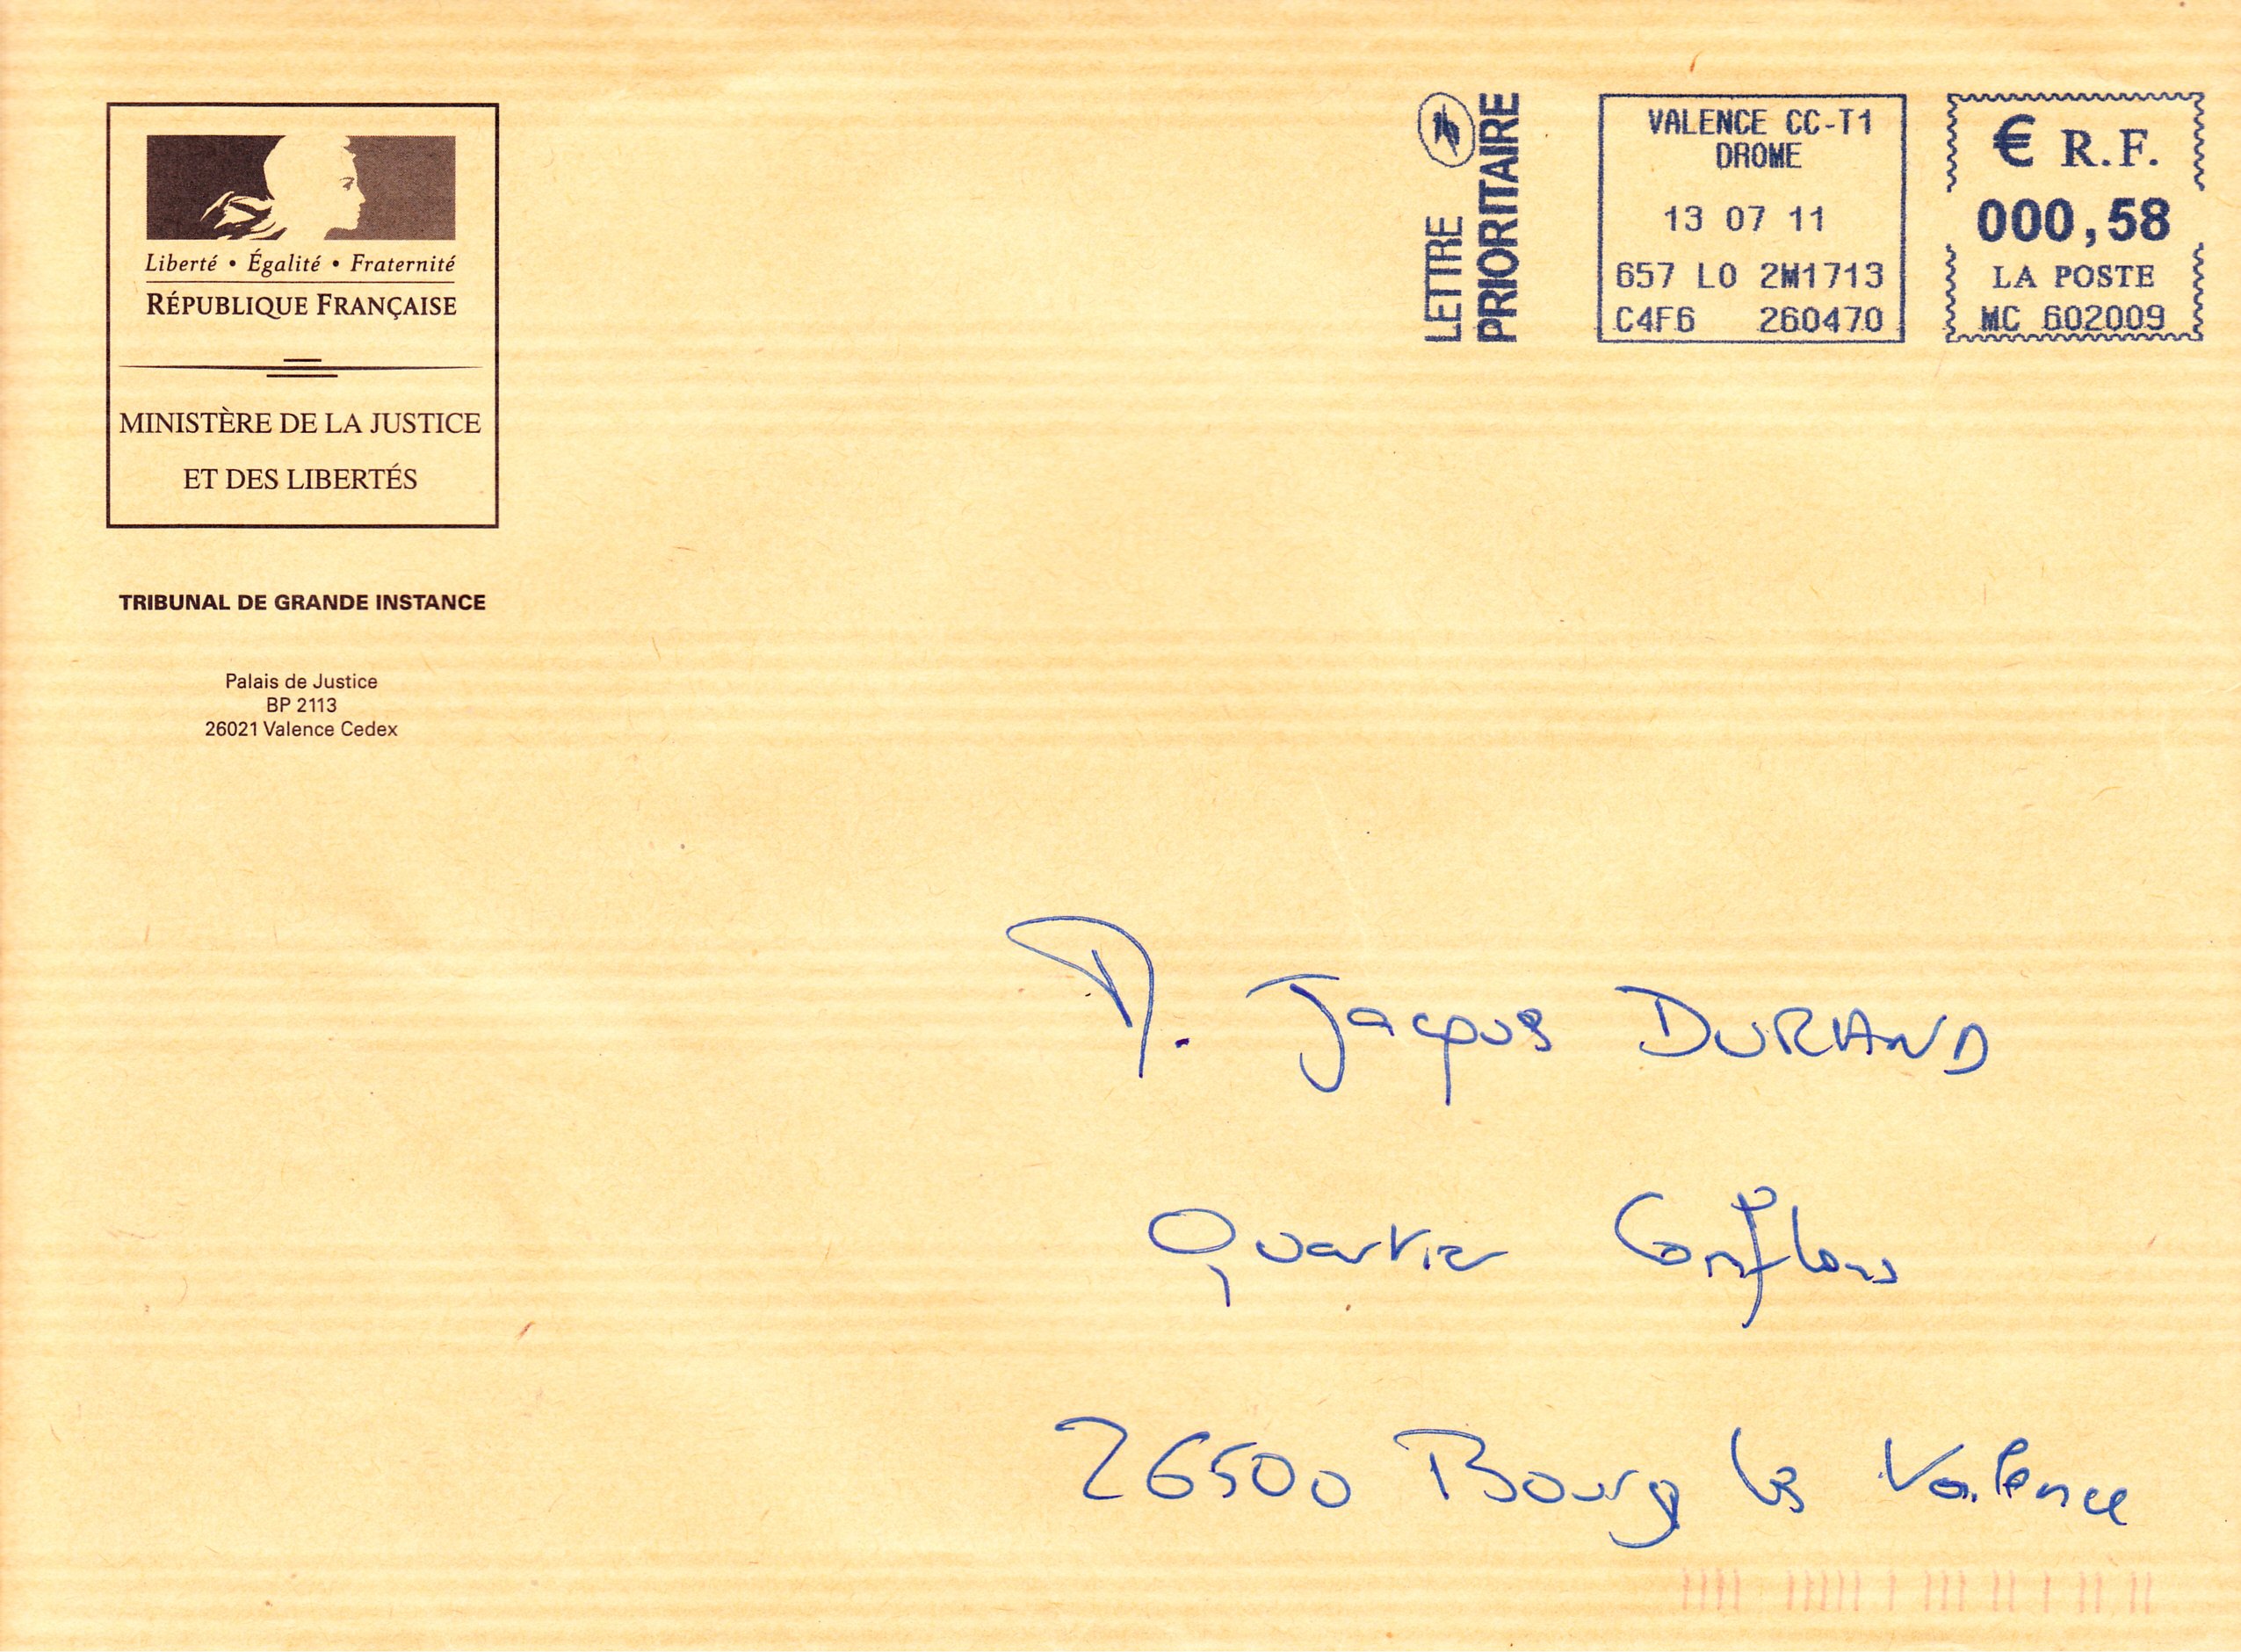 Liberté • Égalité • Fraternité
RÉPUBLIQUE FRANÇAISE
MINISTÈRE DE LA JUSTICE
ET DES LIBERTÉS
TRIBUNAL DE GRANDE INSTANCE
Palais de Justice
BP 2113
26021 Valence Cedex
LETTRE
PRIORITAIRE
VALENCE CC-T1
DROME
13 07 11
657 LO 2M1713
C4F6 260470
€ R.F.
000,58
LA POSTE
MC 602009
M. Jacques DURAND
Quartier Conflans
26500 Bourg les Valence